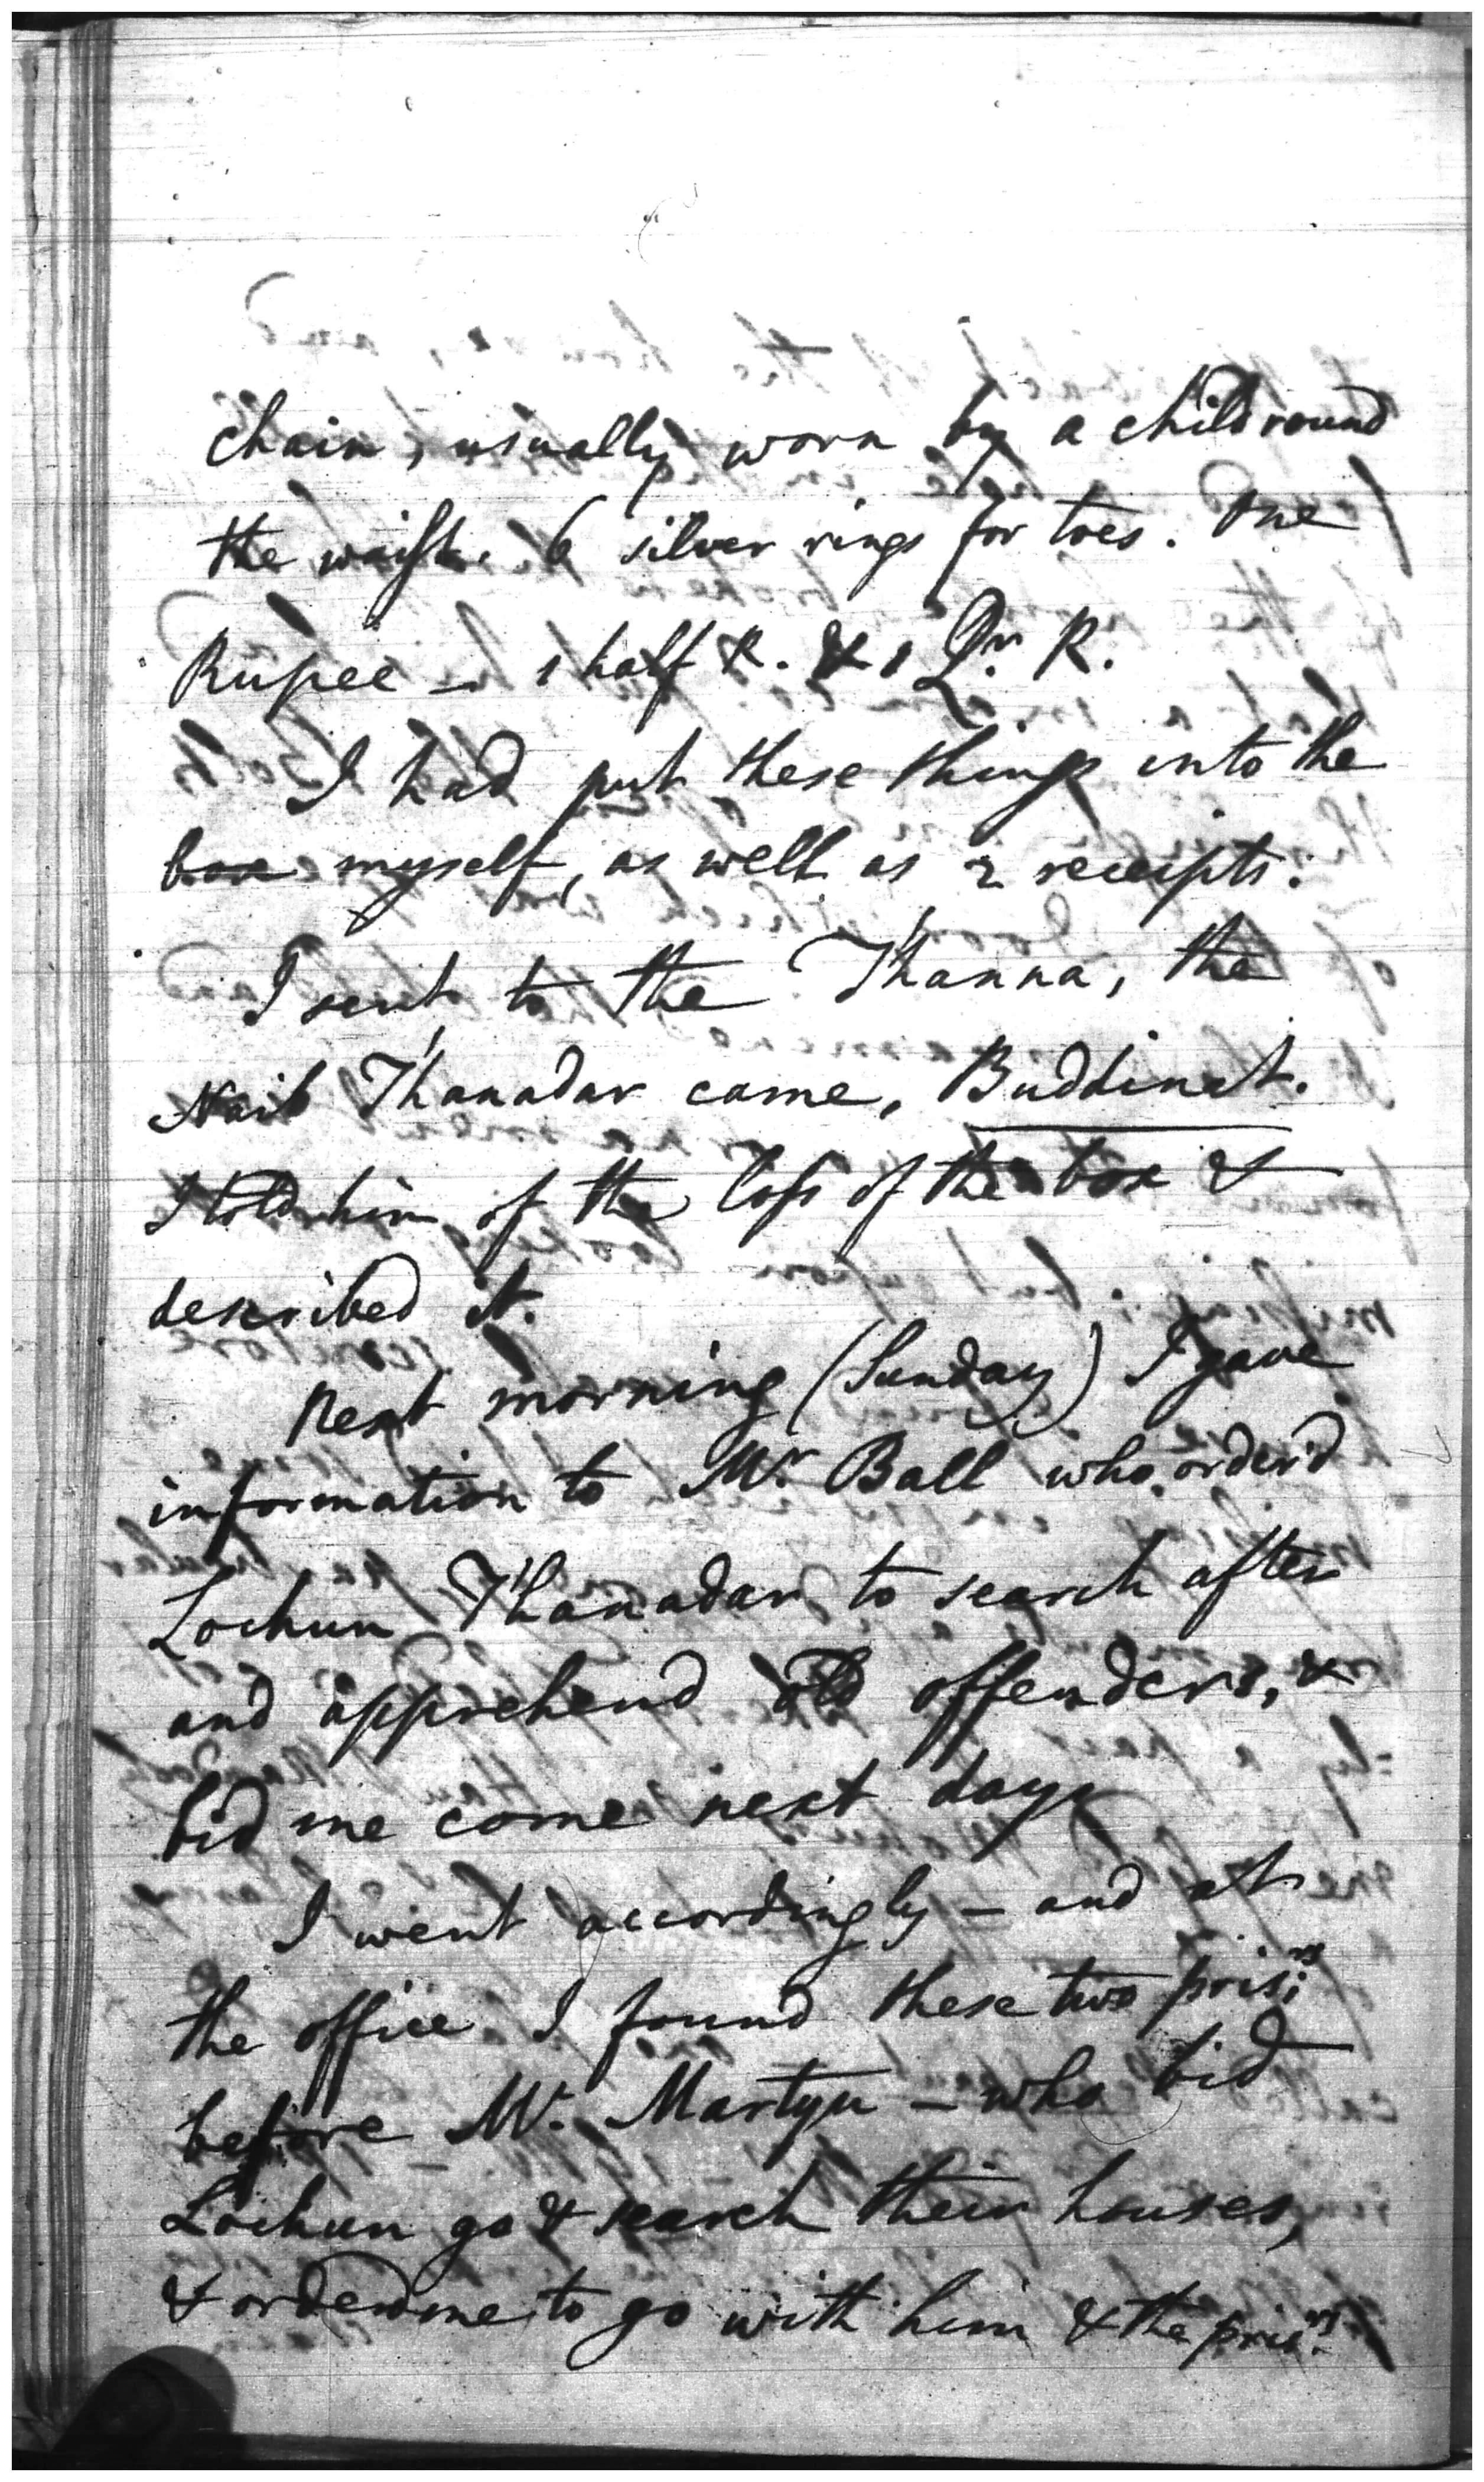 chain, usually worn by a child round
the waist. 6 silver rings for toes. One
Rupee – 1 half R. & 1 Qr. R.
I had put these things into the
box myself, as well as 2 receipts.
I sent to the Thanna, the
Naib Thanadar came, Buddinat.
I told him of the loss of the box &
described it.
Next morning (Sunday) I gave
information to Mr Ball who order'd
Lochun Thanadar to search after
and apprehend old offenders, &
bid me come next day.
I went accordingly – and at
the office I found these two prisrs
before Mr. Martyn – who bid
Lochun go & search their houses,
& order'd me to go with him & the prisrs.